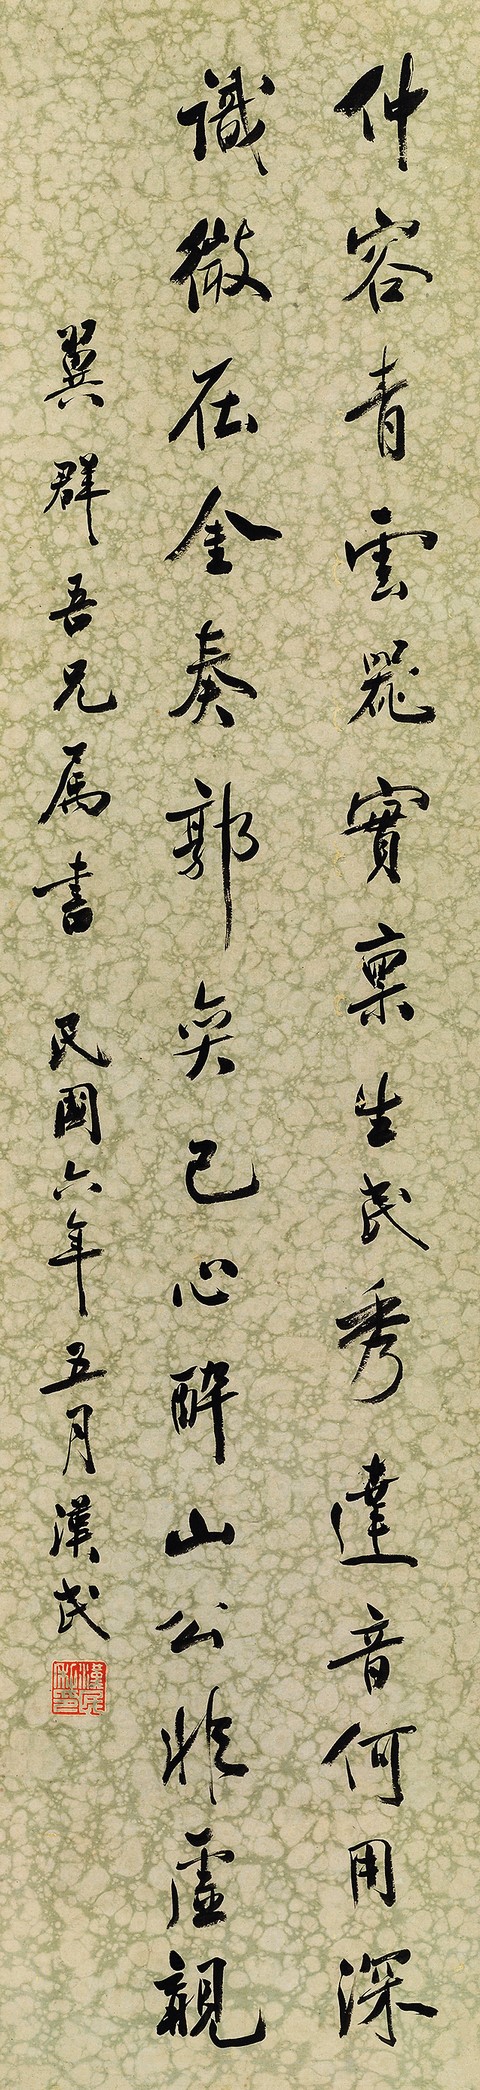 仲容青雲器實稟生民秀達音何用深
識微在金奏郭奕已心醉山公非虛覯
翼群吾兄属書 民國六年五月漢民